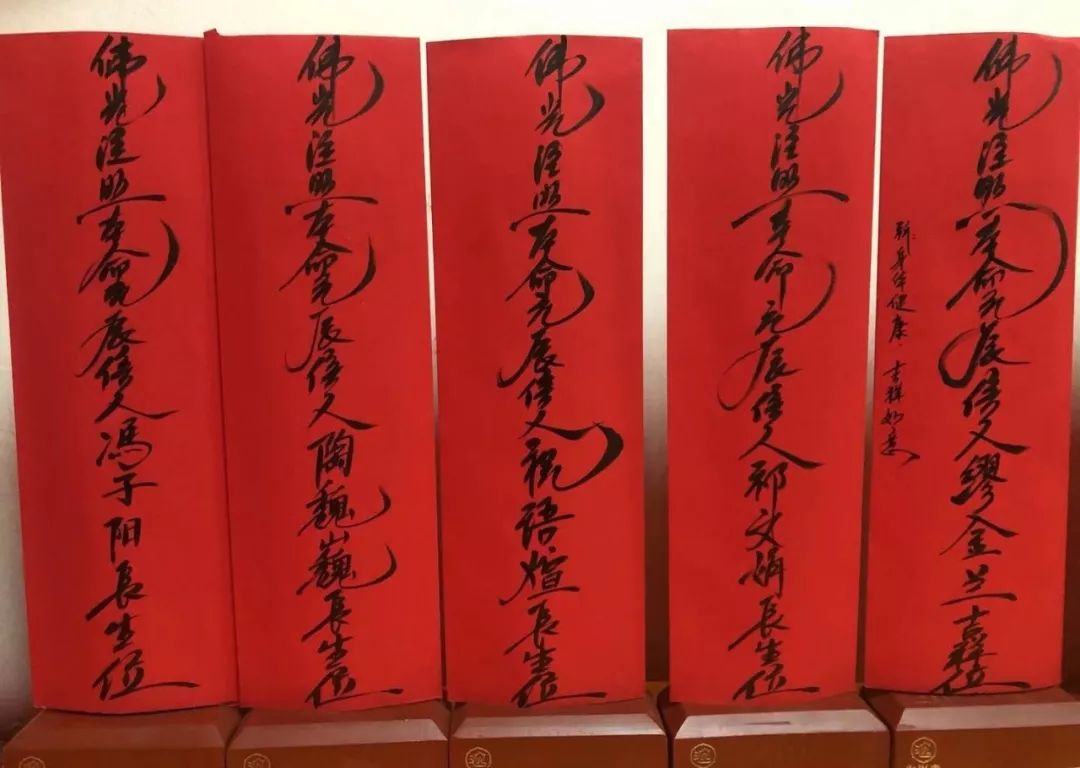 佛光注照本命元辰信人缪金兰吉祥位
祈身体健康·吉祥如意
佛光注照本命元辰信人祁文娟长生位
佛光注照本命元辰信人祝语煊长生位
佛光注照本命元辰信人陶魏巍长生位
佛光注照本命元辰信人冯子阳长生位